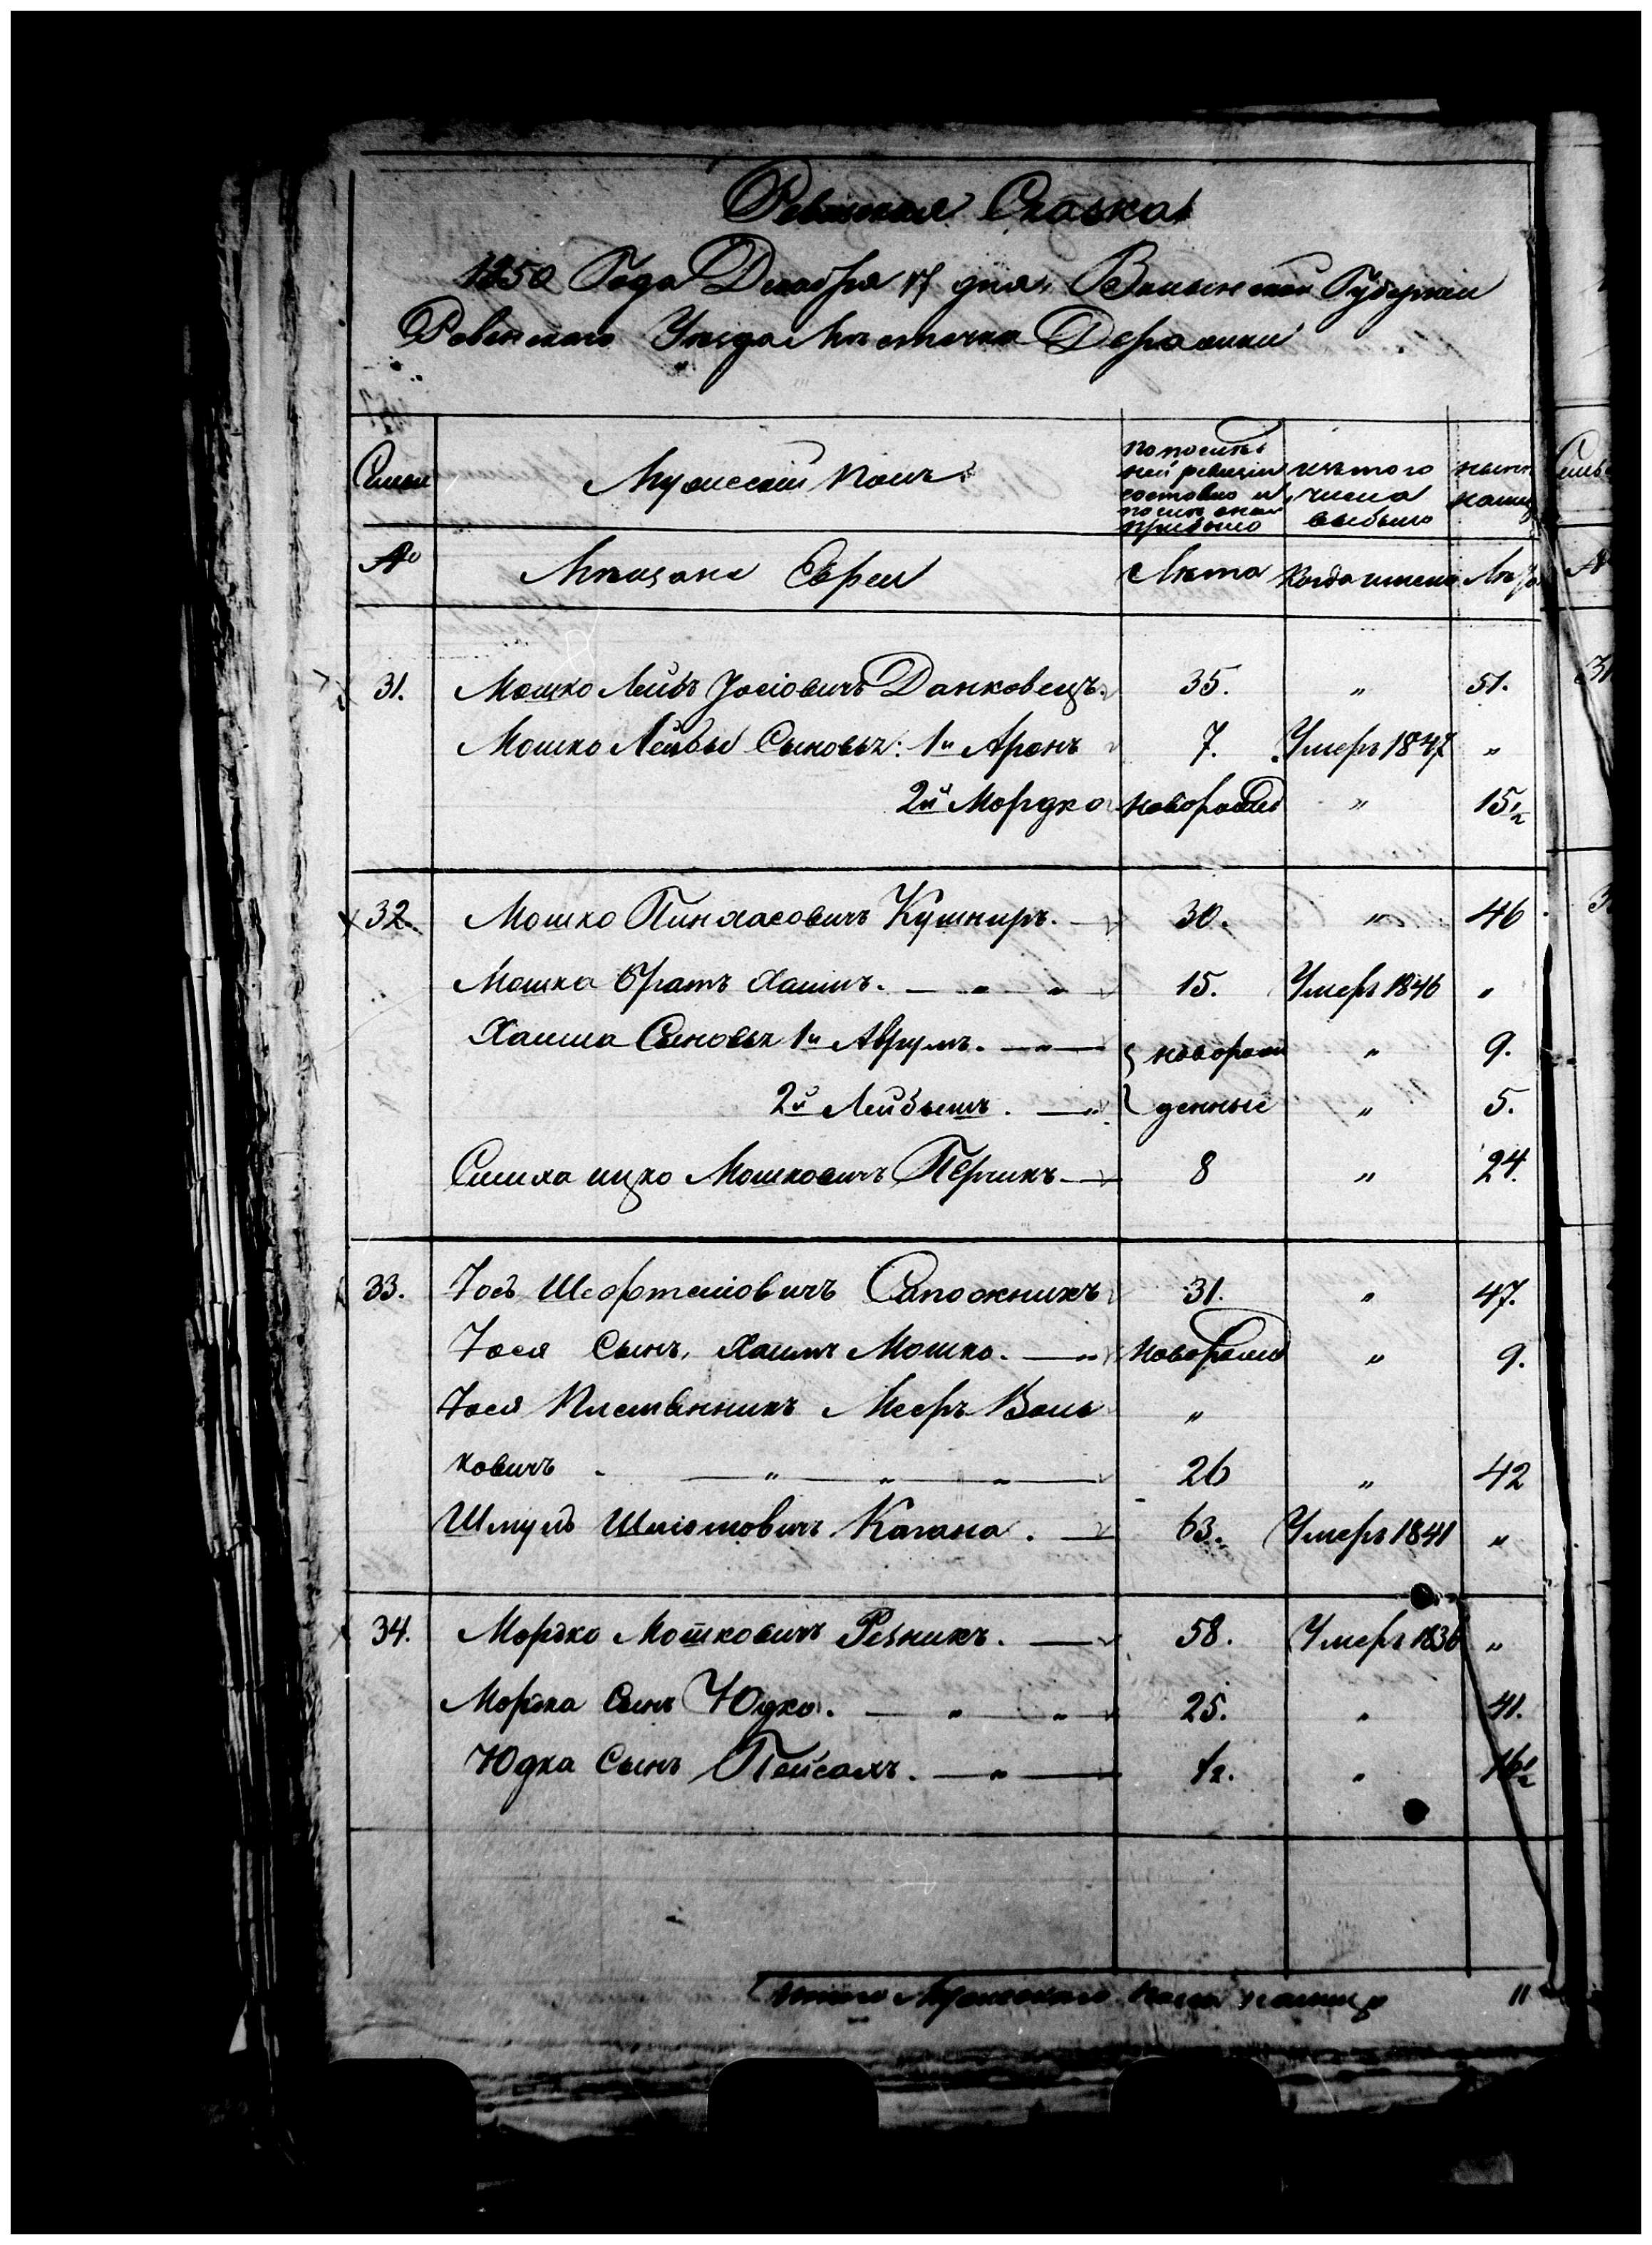 Ревизская Сказка
1850 Года Декабря 17 дня, Волынской Губернии
Ровенского Уезда Местечка Деражни
Семьи
Мужеский Полъ.
По послѣд
ней ревизіи
состояло и
после оной
прибыло
Изъ того
числа
выбыло
нынѣ
на лицо
№
Мѣщане Евреи
Лѣта
Когда именно
Лѣта
31. Мошко Лейбъ Іосіовичъ Данковецъ. 35. " 51.
Мошко Лейбы Сыновья: 1й Аронъ 7. Умеръ 1847 "
2й Мордко новорожд " 15½
32. Мошко Пинхасовичъ Кушниръ. 30. " 46
Мошка Братъ Хаимъ. — " " 15. Умеръ 1846 "
Хаима Сыновья 1й Аврумъ. — " — новорож " 9.
2й Лейбышъ. — " денные " 5.
Симха ицко Мошковичъ Перчикъ — 8 " 24.
33. Іось Шефтеліовичъ Сапожникъ 31. " 47.
Іося Сынъ, Хаимъ Мошко. — " новорожд " 9.
Іося Племянникъ Мееръ Воль "
ковичъ - — " — " — " — 26 " 42
Шмуль Шліомовичъ Кагана. — 63. Умеръ 1841 "
34. Мордко Мошковичъ Резникъ. — 58. Умеръ 1836 "
Мордка Сынъ Юдко. — " — " 25. " 41.
Юдка Сынъ Пейсахъ. — " — ½. " 16½
Итого Мужеского пола налицо 11